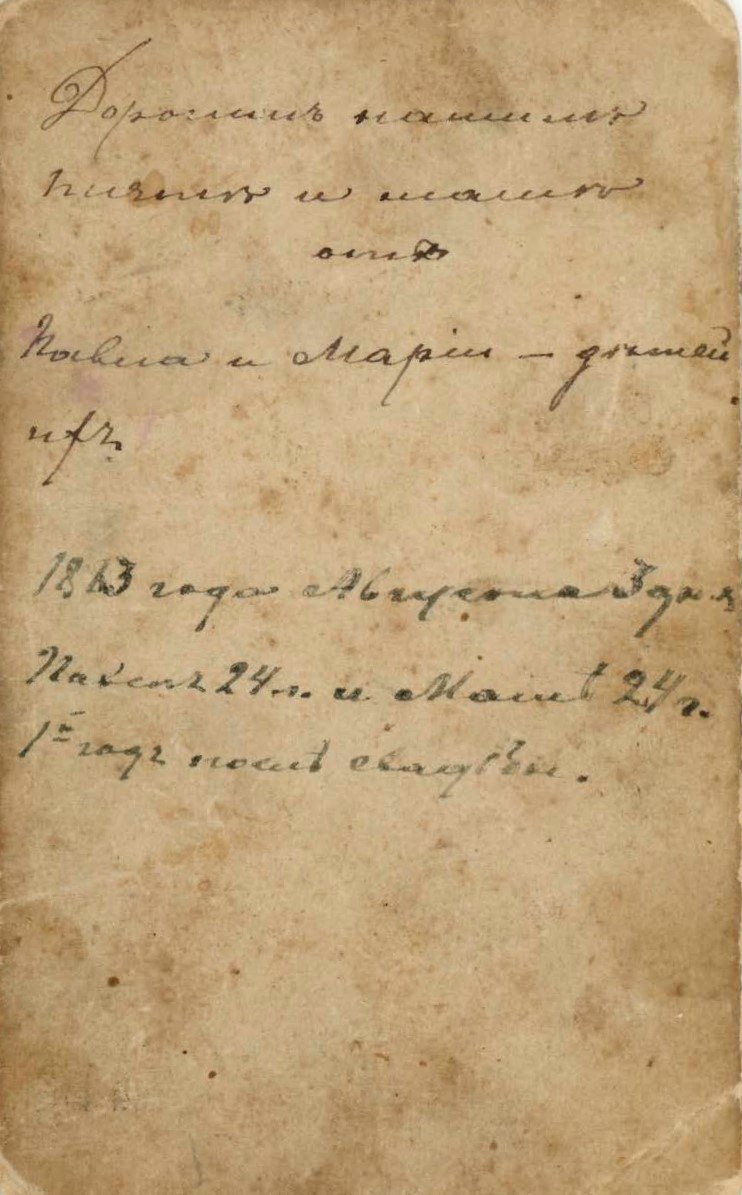 Дорогимъ нашимъ
папѣ и мамѣ
отъ
Павла и Маріи – дѣтей
ихъ.
1863 года Августа 3 дня
Павелъ 24 г. и Машѣ 24 г.
1й годъ послѣ свадьбы.